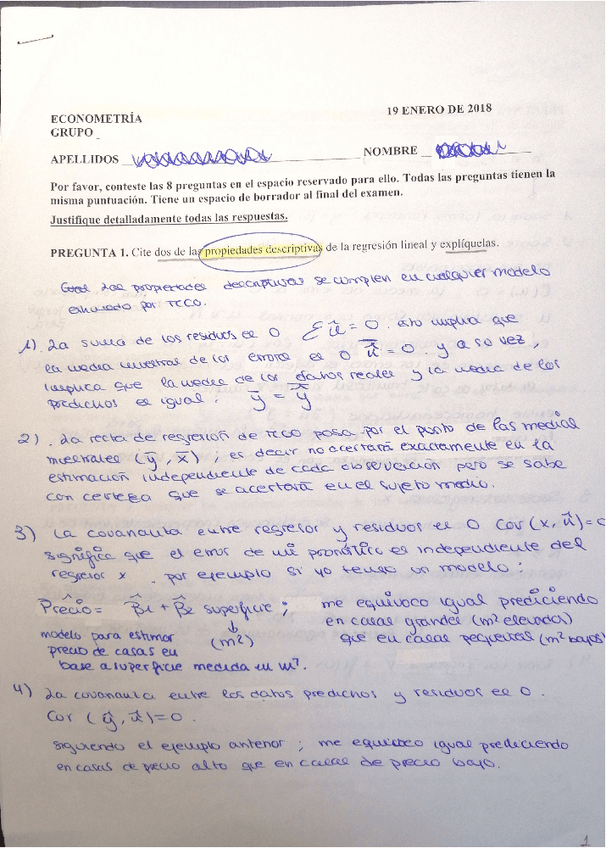 ECONOMETRÍA
19 ENERO DE 2018
GRUPO
APELLIDOS
NOMBRE
Por favor, conteste las 8 preguntas en el espacio reservado para ello. Todas las preguntas tienen la
misma puntuación. Tiene un espacio de borrador al final del examen.
Justifique detalladamente todas las respuestas.
PREGUNTA 1. Cite dos de las propiedades descriptivas de la regresión lineal y explíquelas.
las propiedades descriptivas se cumplen en cualquier modelo
estimado por MCO.
1) La suma de los residuos es 0 Σû = 0. esto implica que
la media muestral de los errores es 0 û̄ = 0. y a su vez,
implica que la media de los datos reales y la media de los
predichos es igual: ȳ = ŷ̄
2). La recta de regresión de MCO pasa por el punto de las medias
muestrales (ȳ, x̄); es decir no acertará exactamente en la
estimación independiente de cada observación pero se sabe
con certeza que se acertará en el sujeto medio.
3) La covarianza entre regresor y residuos es 0 Cov (x, û) = 0
significa que el error de mi pronóstico es independiente del
regresor x. por ejemplo si yo tengo un modelo:
Precio = β̂1 + β̂2 superficie; me equivoco igual prediciendo
en casas grandes (m² elevados)
modelo para estimar (m²) que en casas pequeñas (m² bajos)
precio de casas en
base a superficie medida en m².
4) La covarianza entre los datos predichos y residuos es 0.
Cov (ŷ, û) = 0.
siguiendo el ejemplo anterior; me equivoco igual prediciendo
en casas de precio alto que en casas de precio bajo.
1